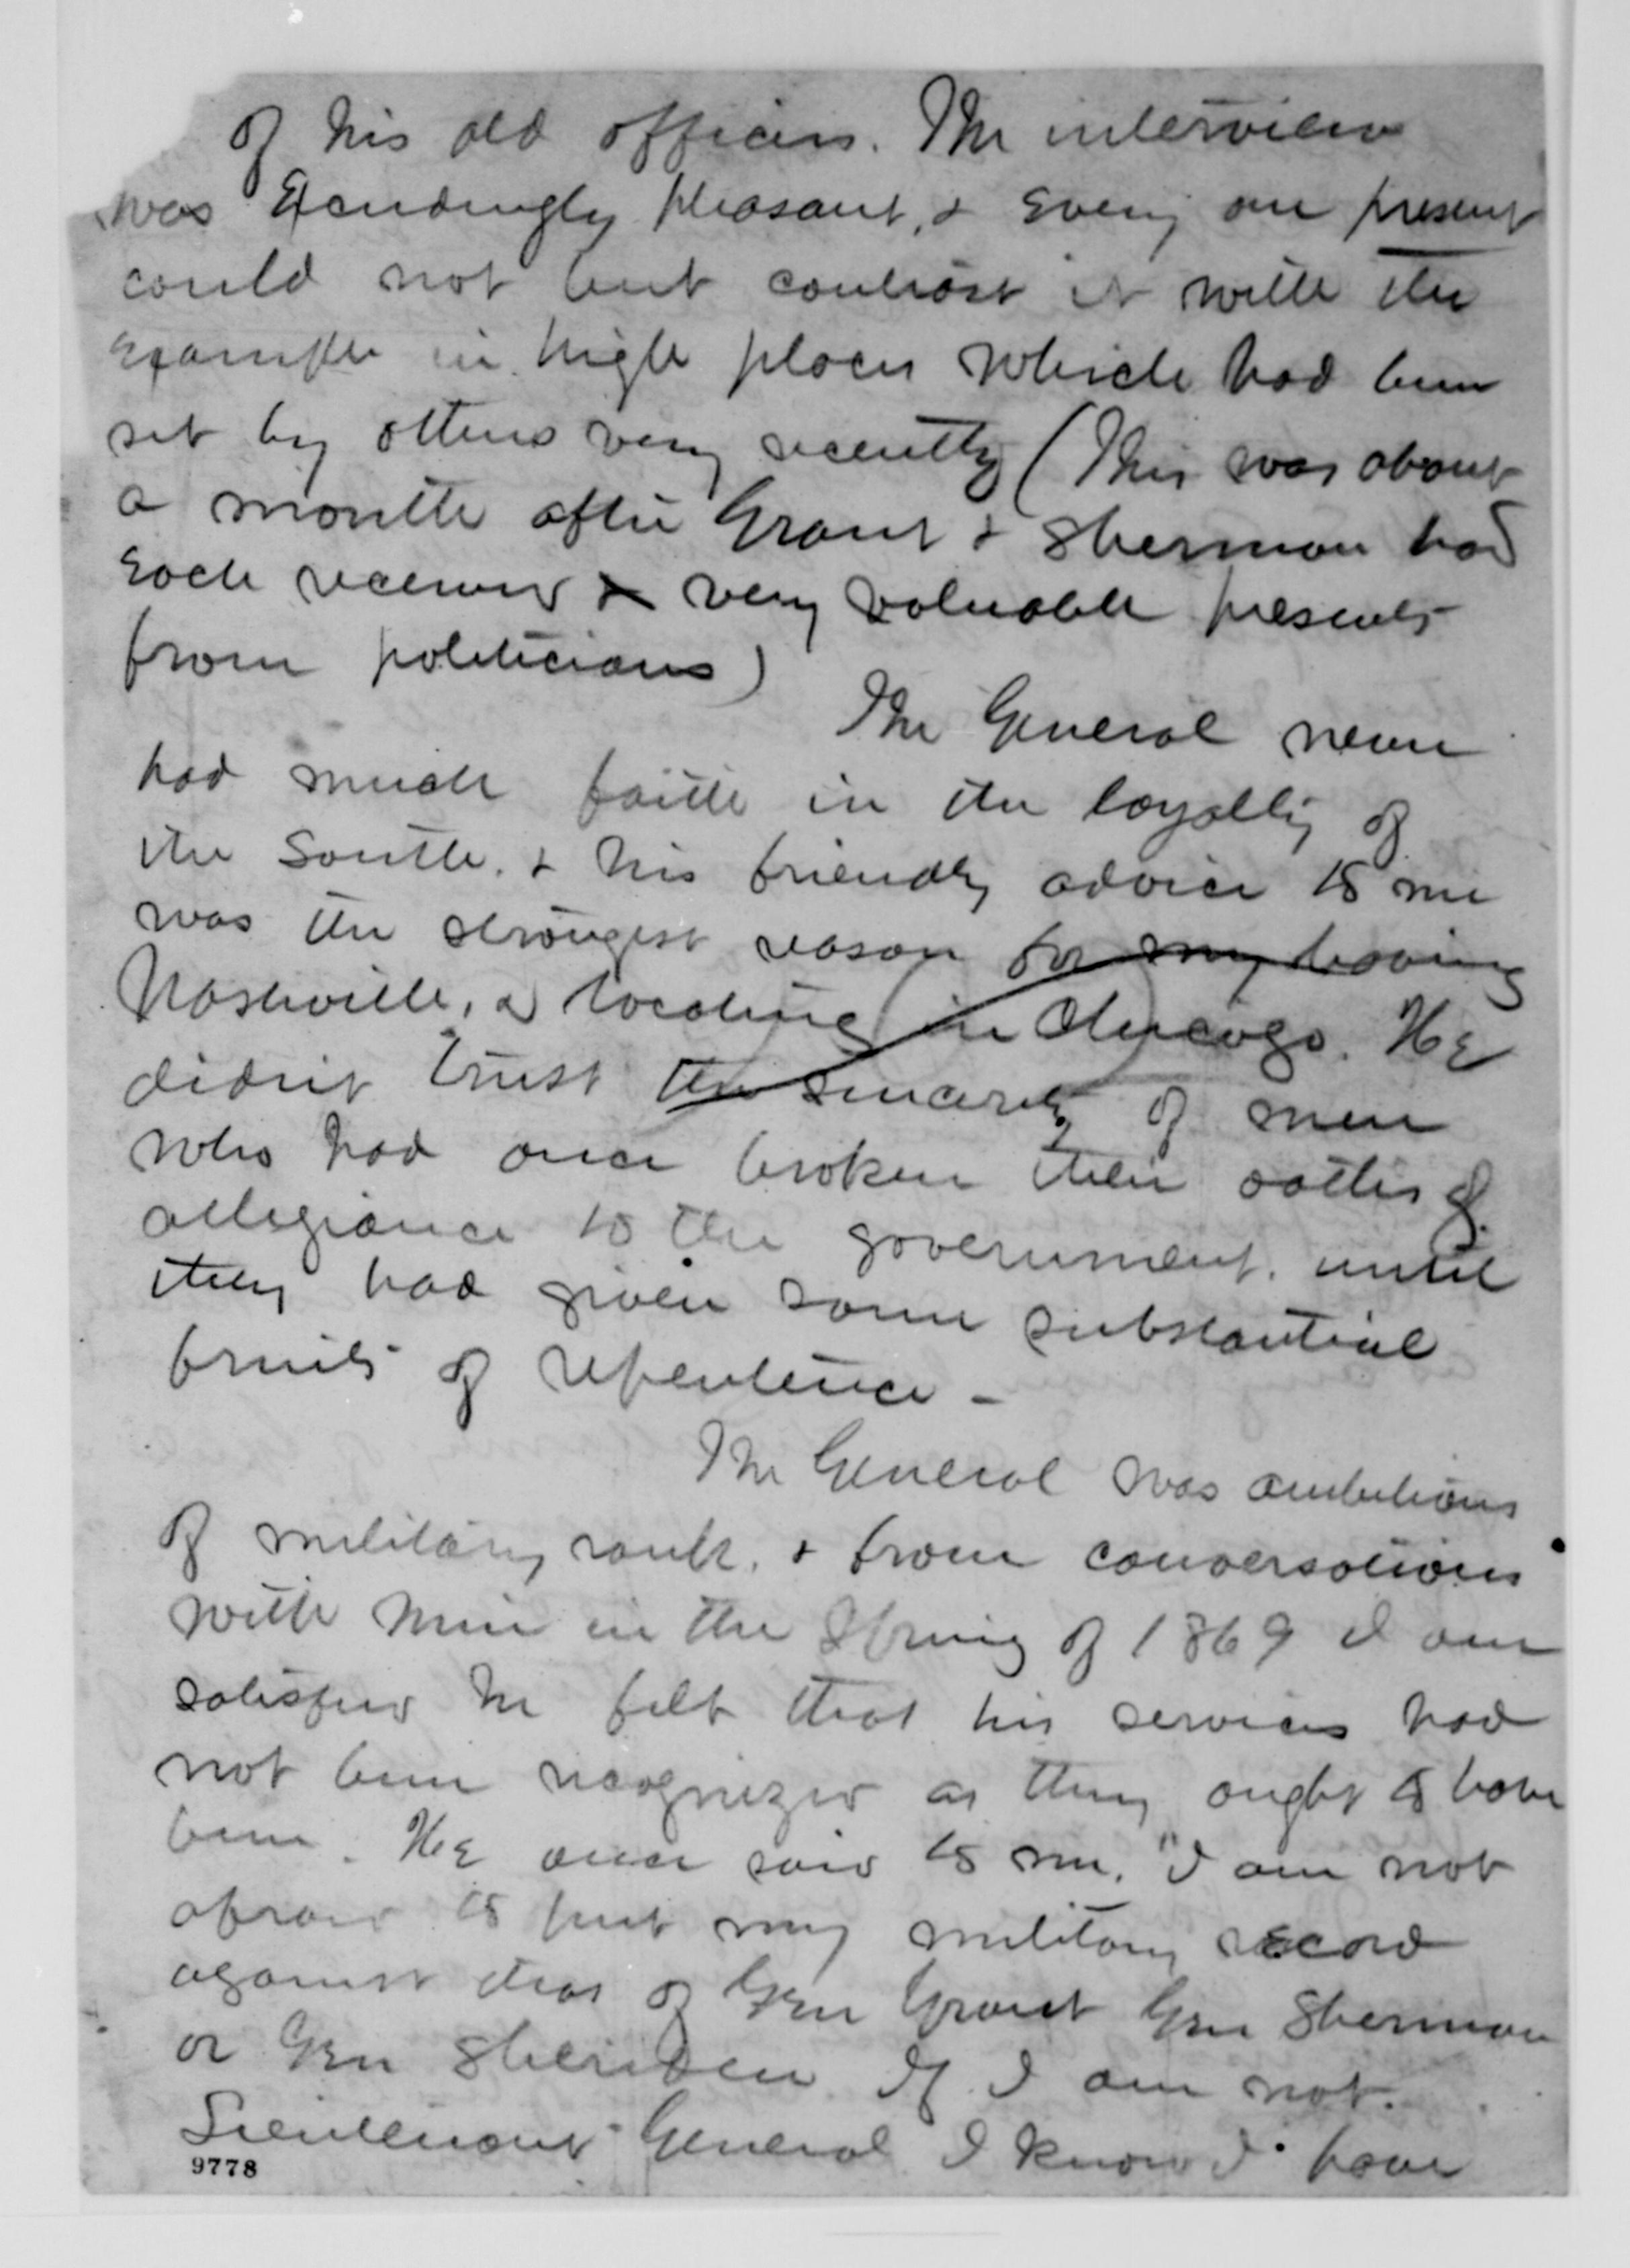 of his old officers. The interview
was Exceedingly pleasant, & Every one present
could not but contrast it with the
Example in high places which had been
set by others very recently (This was about
a month after Grant & Sherman had
Each received a very valuable presents
from politicians)
The General never
had much faith in the loyalty of
the South. & his friendly advice to me
was the strongest reason for my leaving
Nashville, & locating in Chicago. He
didn't trust the sincerity of men
who had once broken their oaths of
allegiance to the government. until
they had given some substantial
fruits of repentence -
The General was ambitious
of military rank. & from conversations
with him in the Spring of 1869 I am
satisfied he felt that his services had
not been recognized as they ought to have
been. He once said to me. "I am not
afraid to put my military record
against that of Gen Grant Gen Sherman
or Gen Sheriden. If I am not.
Lieutenant General I know I have
9778